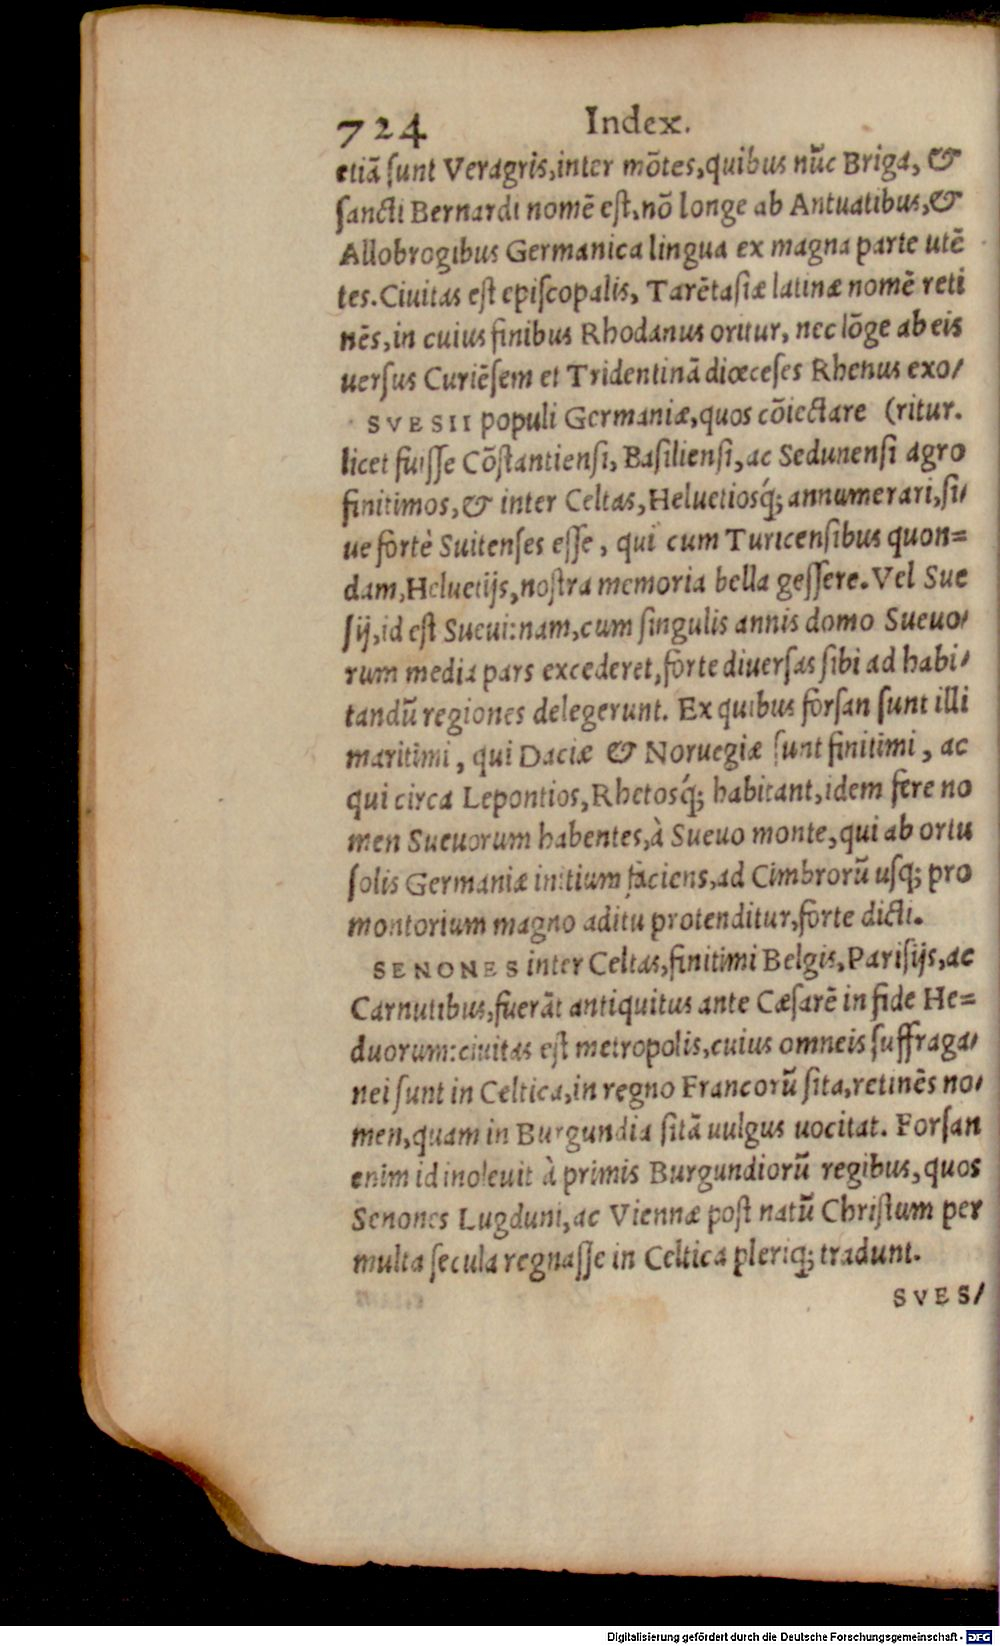 724 Index.
etiā sunt Veragris, inter mōtes, quibus nūc Briga, &
sancti Bernardi nomē est, nō longe ab Antuatibus, &
Allobrogibus Germanica lingua ex magna parte utē
tes. Ciuitas est episcopalis, Tarētasiæ latinæ nomē reti
nēs, in cuius finibus Rhodanus oritur, nec lōge ab eis
uersus Curiēsem et Tridentinā diœceses Rhenus exo/
SVESII populi Germaniæ, quos cōiectare (ritur.
licet fuisse Cōstantiensi, Basiliensi, ac Sedunensi agro
finitimos, & inter Celtas, Heluetiosq́; annumerari, si/
ue fortè Suitenses esse, qui cum Turicensibus quon=
dam, Heluetijs, nostra memoria bella gessere. Vel Sue
sij, id est Sueui: nam, cum singulis annis domo Sueuo/
rum media pars excederet, forte diuersas sibi ad habi/
tandū regiones delegerunt. Ex quibus forsan sunt illi
maritimi, qui Daciæ & Noruegiæ sunt finitimi, ac
qui circa Lepontios, Rhetosq́; habitant, idem fere no
men Sueuorum habentes, à Sueuo monte, qui ab ortu
solis Germaniæ initium faciens, ad Cimbrorū usq; pro
montorium magno aditu protenditur, forte dicti.
SENONES inter Celtas, finitimi Belgis, Parisijs, ac
Carnutibus, fuerāt antiquitus ante Cæsarē in fide He=
duorum: ciuitas est metropolis, cuius omneis suffraga/
nei sunt in Celtica, in regno Francorū sita, retinēs no/
men, quam in Burgundia sitā uulgus uocitat. Forsan
enim id inoleuit à primis Burgundiorū regibus, quos
Senones Lugduni, ac Viennæ post natū Christum per
multa secula regnasse in Celtica pleriq; tradunt.
SVES/
Digitalisierung gefördert durch die Deutsche Forschungsgemeinschaft - DFG